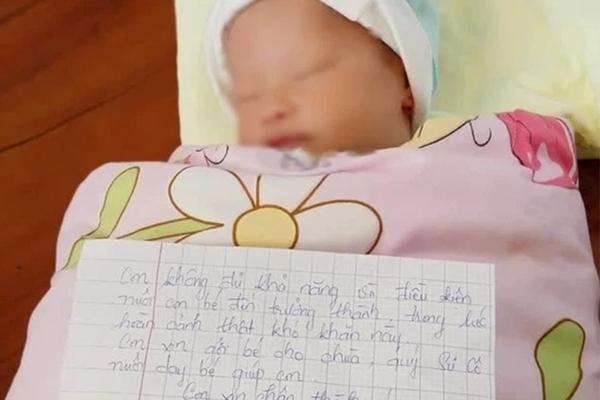 Con không đủ khả năng và điều kiện
nuôi con bé đến trưởng thành, trong lúc
hoàn cảnh thật khó khăn này.
Con xin gởi bé cho chùa, quý Sư Cô
nuôi dạy bé giúp con.
Con xin